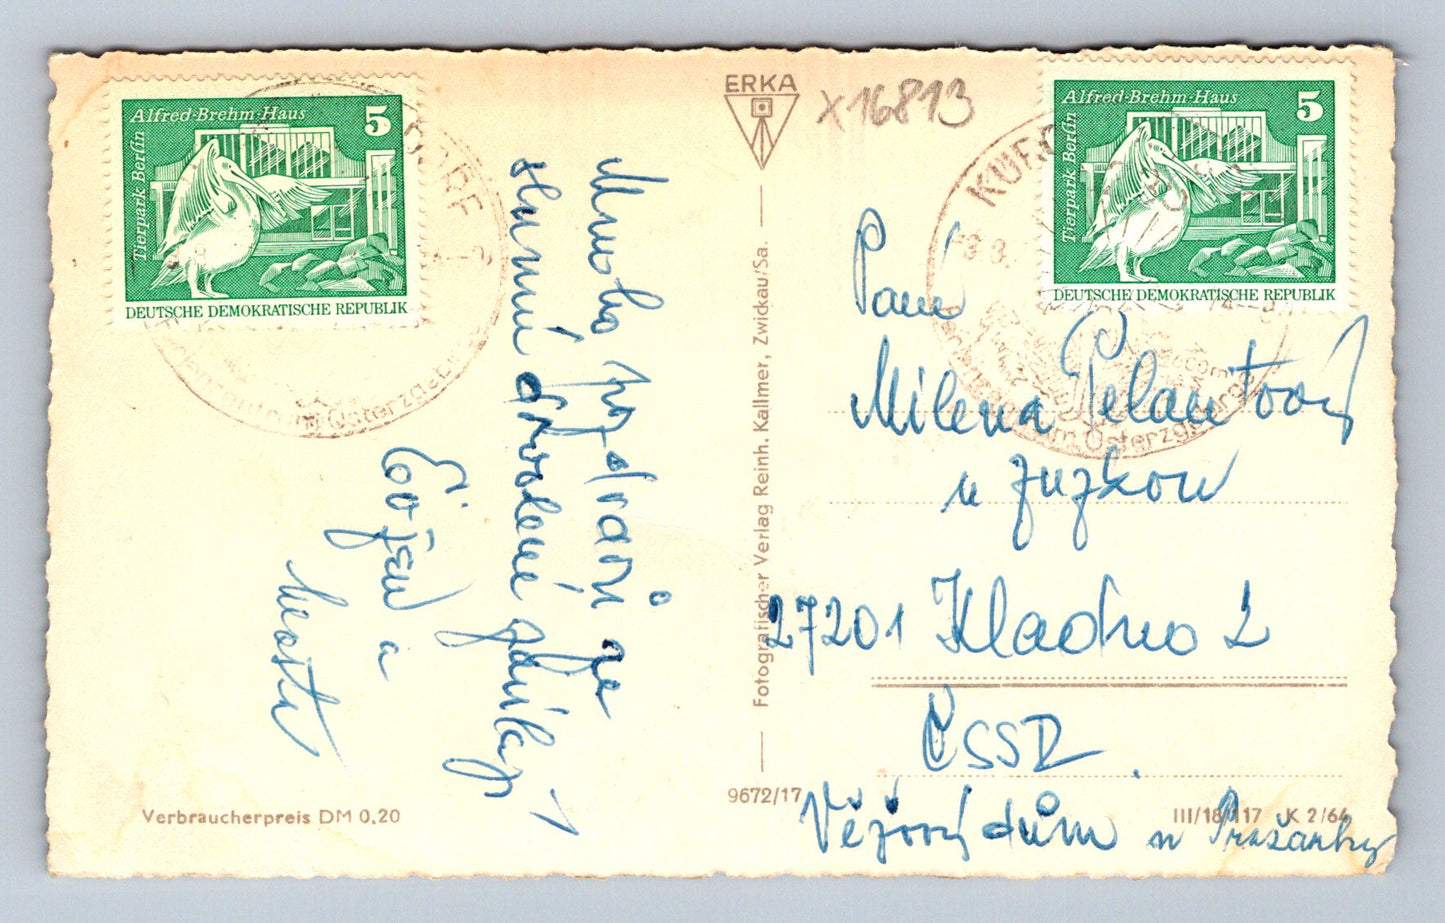 Alfred-Brehm-Haus
5
Tierpark Berlin
DEUTSCHE DEMOKRATISCHE REPUBLIK
DORF
Osterzgeb
ERKA
X16813
Alfred-Brehm-Haus
5
Tierpark Berlin
DEUTSCHE DEMOKRATISCHE REPUBLIK
KURO
Osterzgebirge
Mnoho pozdravů ze
slunné dovolené
Evžen a
Fotografischer Verlag Reinh. Kallmer, Zwickau/Sa.
Paní
Milena
u
27201 Kladno 2
ČSSR
Věžový dům
Verbraucherpreis DM 0,20
9672/17
III/18/117 K 2/64